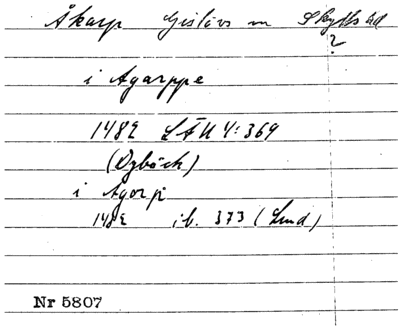 Åkarp Gislövs sn Skytts hd
?
i Agarppe
1482 LÄU 4:369
(Dybäck)
i Agorp
1482 ib. 373 (Lund)
Nr 5807